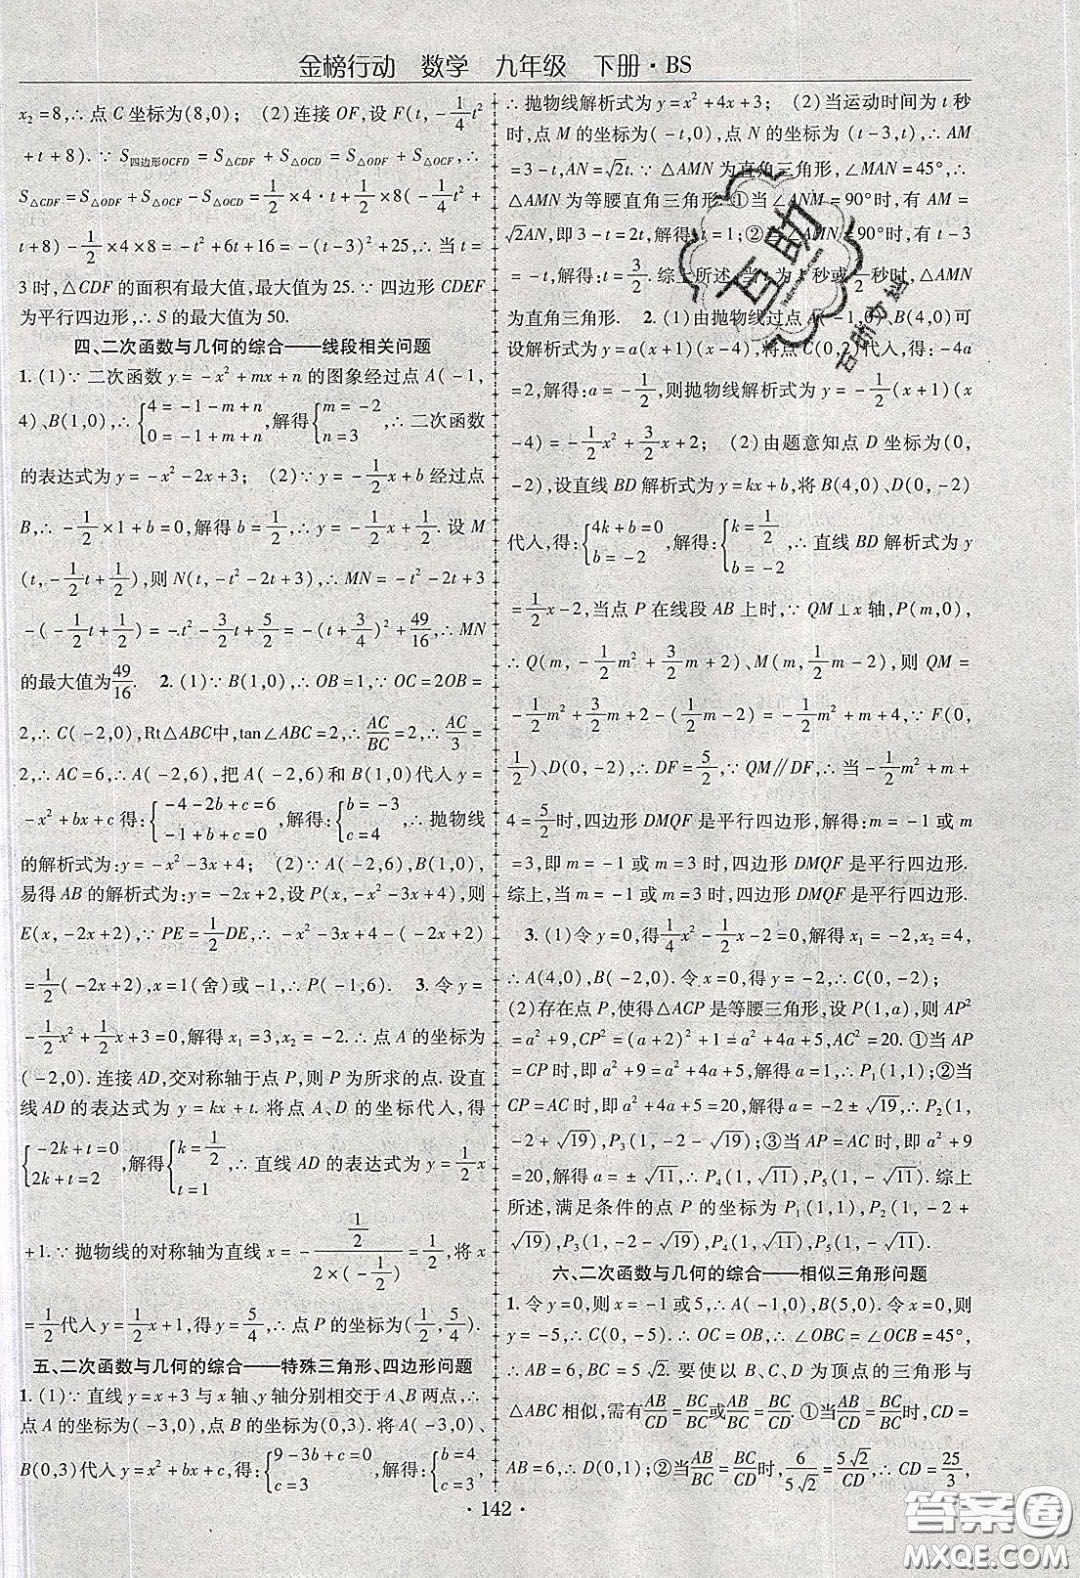 金榜行动 数学 九年级 下册·BS
x₂=8,∴点C坐标为(8,0); (2)连接OF,设F(t,-1/4t²
+t+8).∵S四边形OCFD=S△CDF+S△OCD=S△ODF+S△OCF,∴
S△CDF=S△ODF+S△OCF-S△OCD=1/2×4·t+1/2×8(-1/4t²+
t+8)-1/2×4×8=-t²+6t+16=-(t-3)²+25,∴当t=
3时,△CDF的面积有最大值,最大值为25.∵四边形CDEF
为平行四边形,∴S的最大值为50.
四、二次函数与几何的综合——线段相关问题
1.(1)∵二次函数y=-x²+mx+n的图象经过点A(-1,
4)、B(1,0),∴{4=-1-m+n 0=-1+m+n,解得{m=-2 n=3,∴二次函数
的表达式为y=-x²-2x+3; (2)∵y=-1/2x+b经过点
B,∴-1/2×1+b=0,解得b=1/2,∴y=-1/2x+1/2.设M
(t,-1/2t+1/2),则N(t,-t²-2t+3),∴MN=-t²-2t+3
-(-1/2t+1/2)=-t²-3/2t+5/2=-(t+3/4)²+49/16,∴MN
的最大值为49/16. 2.(1)∵B(1,0),∴OB=1,∵OC=2OB=
2,∴C(-2,0),Rt△ABC中,tan∠ABC=2,∴AC/BC=2,∴AC/3=
2,∴AC=6,∴A(-2,6),把A(-2,6)和B(1,0)代入y=
-x²+bx+c得:{-4-2b+c=6 -1+b+c=0,解得:{b=-3 c=4,∴抛物线
的解析式为:y=-x²-3x+4; (2)∵A(-2,6),B(1,0),
易得AB的解析式为:y=-2x+2,设P(x,-x²-3x+4),则
E(x,-2x+2),∵PE=1/2DE,∴-x²-3x+4-(-2x+2)
=1/2(-2x+2),x=1(舍)或-1,∴P(-1,6). 3.令y=
-1/2x²+1/2x+3=0,解得x₁=3,x₂=-2.∴点A的坐标为
(-2,0).连接AD,交对称轴于点P,则P为所求的点.设直
线AD的表达式为y=kx+t.将点A、D的坐标代入,得
{-2k+t=0 2k+t=2,解得{k=1/2 t=1,∴直线AD的表达式为y=1/2x
+1.∵抛物线的对称轴为直线x=-(1/2)/(2×(-1/2))=1/2,将x
=1/2代入y=1/2x+1,得y=5/4,∴点P的坐标为(1/2,5/4).
五、二次函数与几何的综合——特殊三角形、四边形问题
1.(1)∵直线y=x+3与x轴、y轴分别相交于A、B两点,∴
点A的坐标为(-3,0),点B的坐标为(0,3).将A(-3,0)、
B(0,3)代入y=x²+bx+c,得:{9-3b+c=0 c=3,解得:{b=4 c=3,
∴抛物线解析式为y=x²+4x+3; (2)当运动时间为t秒
时,点M的坐标为(-t,0),点N的坐标为(t-3,t),∴AM
=3-t,AN=√2t.∵△AMN为直角三角形,∠MAN=45°,∴
△AMN为等腰直角三角形.①当∠ANM=90°时,有AM=
√2AN,即3-t=2t,解得:t=1;②当∠AMN=90°时,有t-3
=-t,解得:t=3/2.综上所述,当t为1秒或3/2秒时,△AMN
为直角三角形. 2.(1)由抛物线过点A(-1,0)、B(4,0)可
设解析式为y=a(x+1)(x-4),将点C(0,2)代入,得:-4a
=2,解得:a=-1/2,则抛物线解析式为y=-1/2(x+1)(x
-4)=-1/2x²+3/2x+2; (2)由题意知点D坐标为(0,
-2),设直线BD解析式为y=kx+b,将B(4,0)、D(0,-2)
代入,得:{4k+b=0 b=-2,解得:{k=1/2 b=-2,∴直线BD解析式为y
=1/2x-2,当点P在线段AB上时,∵QM⊥x轴,P(m,0),
∴Q(m,-1/2m²+3/2m+2)、M(m,1/2m-2),则QM=
-1/2m²+3/2m+2-(1/2m-2)=-1/2m²+m+4,∵F(0,
1/2)、D(0,-2),∴DF=5/2,∵QM∥DF,∴当-1/2m²+m+
4=5/2时,四边形DMQF是平行四边形,解得:m=-1或m
=3,即m=-1或m=3时,四边形DMQF是平行四边形.
综上,当m=-1或m=3时,四边形DMQF是平行四边形.
3.(1)令y=0,得1/4x²-1/2x-2=0,解得x₁=-2,x₂=4,
∴A(4,0),B(-2,0).令x=0,得y=-2,∴C(0,-2);
(2)存在点P,使得△ACP是等腰三角形,设P(1,a),则AP²
=a²+9,CP²=(a+2)²+1=a²+4a+5,AC²=20.①当AP
=CP时,即a²+9=a²+4a+5,解得a=1,∴P₁(1,1);②当
CP=AC时,即a²+4a+5=20,解得a=-2±√19,∴P₂(1,
-2+√19),P₃(1,-2-√19);③当AP=AC时,即a²+9
=20,解得a=±√11,∴P₄(1,√11),P₅(1,-√11).综上
所述,满足条件的点P的坐标为P₁(1,1),P₂(1,-2+
√19),P₃(1,-2-√19),P₄(1,√11),P₅(1,-√11).
六、二次函数与几何的综合——相似三角形问题
1.令y=0,则x=-1或5,∴A(-1,0),B(5,0).令x=0,则
y=-5,∴C(0,-5).∴OC=OB,∴∠OBC=∠OCB=45°,
∴AB=6,BC=5√2.要使以B、C、D为顶点的三角形与
△ABC相似,需有AB/CD=BC/BC或AB/BC=BC/CD.①当AB/CD=BC/BC时,CD=
AB=6,∴D(0,1);②当AB/BC=BC/CD时,6/5√2=5√2/CD,∴CD=25/3,
·142·
互助
答案圈
MXQE.COM